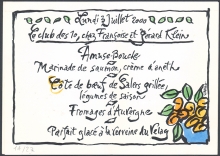 Lundi 3 Juillet 2000
Le club des 10, chez Françoise et Gérard Klein
Amuse-Bouche
Marinade de saumon, crème d'aneth
Côte de bœuf de Salers grillée,
légumes de saison
Fromages d'Auvergne
Parfait glacé à la Verveine du Velay